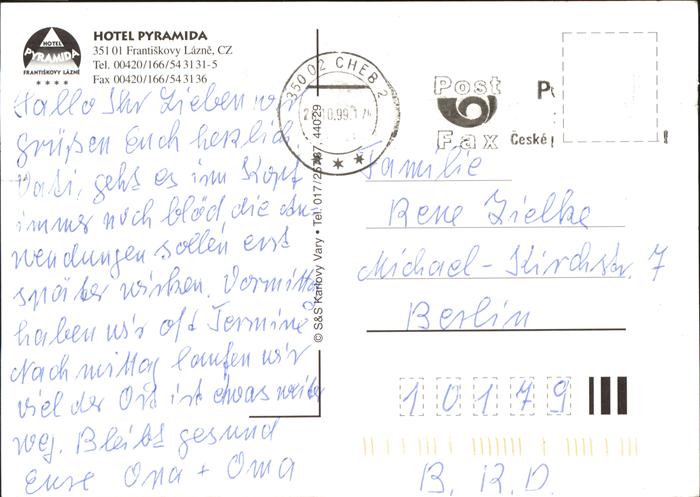 HOTEL PYRAMIDA
351 01 Františkovy Lázně, CZ
Tel. 00420/166/543131-5
Fax 00420/166/543136
HOTEL
PYRAMIDA
FRANTIŠKOVY LÁZNĚ
★ ★ ★ ★
Hallo Ihr Lieben wir
grüßen Euch herzlich
Vati, gehts es im Kopf
immer noch blöd die An-
wendungen sollen erst
später wirken. Vormittag
haben wir oft Termine
Nachmittag laufen wir
viel der Ort ist etwas weiter
weg. Bleibt gesund
Eure Opa + Oma
© S&S Karlovy Vary • Tel. 017/25 440 29
350 02 CHEB 2
10.99
Post
Fax
České
Familie
Rene Zielke
Michael-Kirchstr. 7
Berlin
10179
B. R. D.